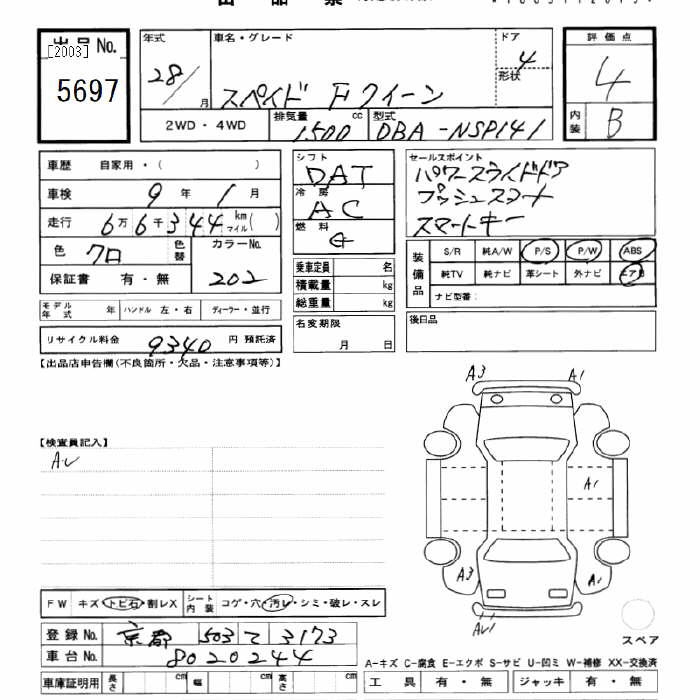 出品No.
[2003]
5697
年式
28/
月
車名・グレード
スペイド Fクイーン
ドア
4
形状
評価点
4
内装
B
2WD・4WD
排気量
1500 cc
型式
DBA-NSP141
車歴 自家用・( )
車検 9年 1月
走行 6万6千344 km マイル( )
色 クロ
色替
カラーNo.
202
保証書 有・無
モデル年式 年
ハンドル 左・右
ディーラー・並行
リサイクル料金 9340 円 預託済
シフト
DAT
冷房
AC
燃料
G
乗車定員 名
積載量 kg
総重量 kg
名変期限
月 日
セールスポイント
パワースライドドア
プッシュスタート
スマートキー
装備品
S/R 純A/W P/S P/W ABS
純TV 純ナビ 革シート 外ナビ エアB
ナビ型番:
後日品
【出品店申告欄(不良箇所・欠品・注意事項等)】
【検査員記入】
AU
A3
A1
A1
A3
A1
AU1
スペア
FW キズ・トビ石・割レX
シート内装 コゲ・穴・汚レ・シミ・破レ・スレ
登録No. 京都 503 て 3173
車台No. 8020244
車庫証明用 長さ cm 幅 cm 高さ cm
A-キズ C-腐食 E-エクボ S-サビ U-凹ミ W-補修 XX-交換済
工具 有・無 ジャッキ 有・無